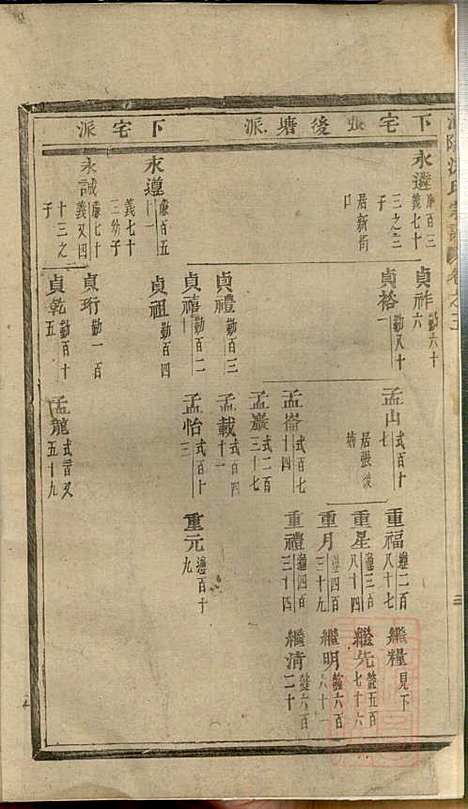 下宅張後塘派
下宅派
永遷 康百三義七十三之三子居新街口
永遵 康百五十一義七十二幼子
永誠 康七十義又四十三之子
貞祚 勤六十六
貞格 勤又十一
貞禮 勤百二三
貞禧 勤百二十一
貞祖 勤百四
貞珩 勤一百
貞乾 勤百十五
孟山 式百十七居張後塘
孟崙 式百七十四
孟巖 式二百三十七
孟載 式百四十一
孟怡 式百十三
孟龍 式百又五十九
重福 遜二百八十七
重星 遜三百八十四
重月 遜四百三十九
重禮 遜四百三十四
重元 遜百十九
繼糧 見下
繼先 龍五百七十六
繼明 六百六十一
繼清 六百二十